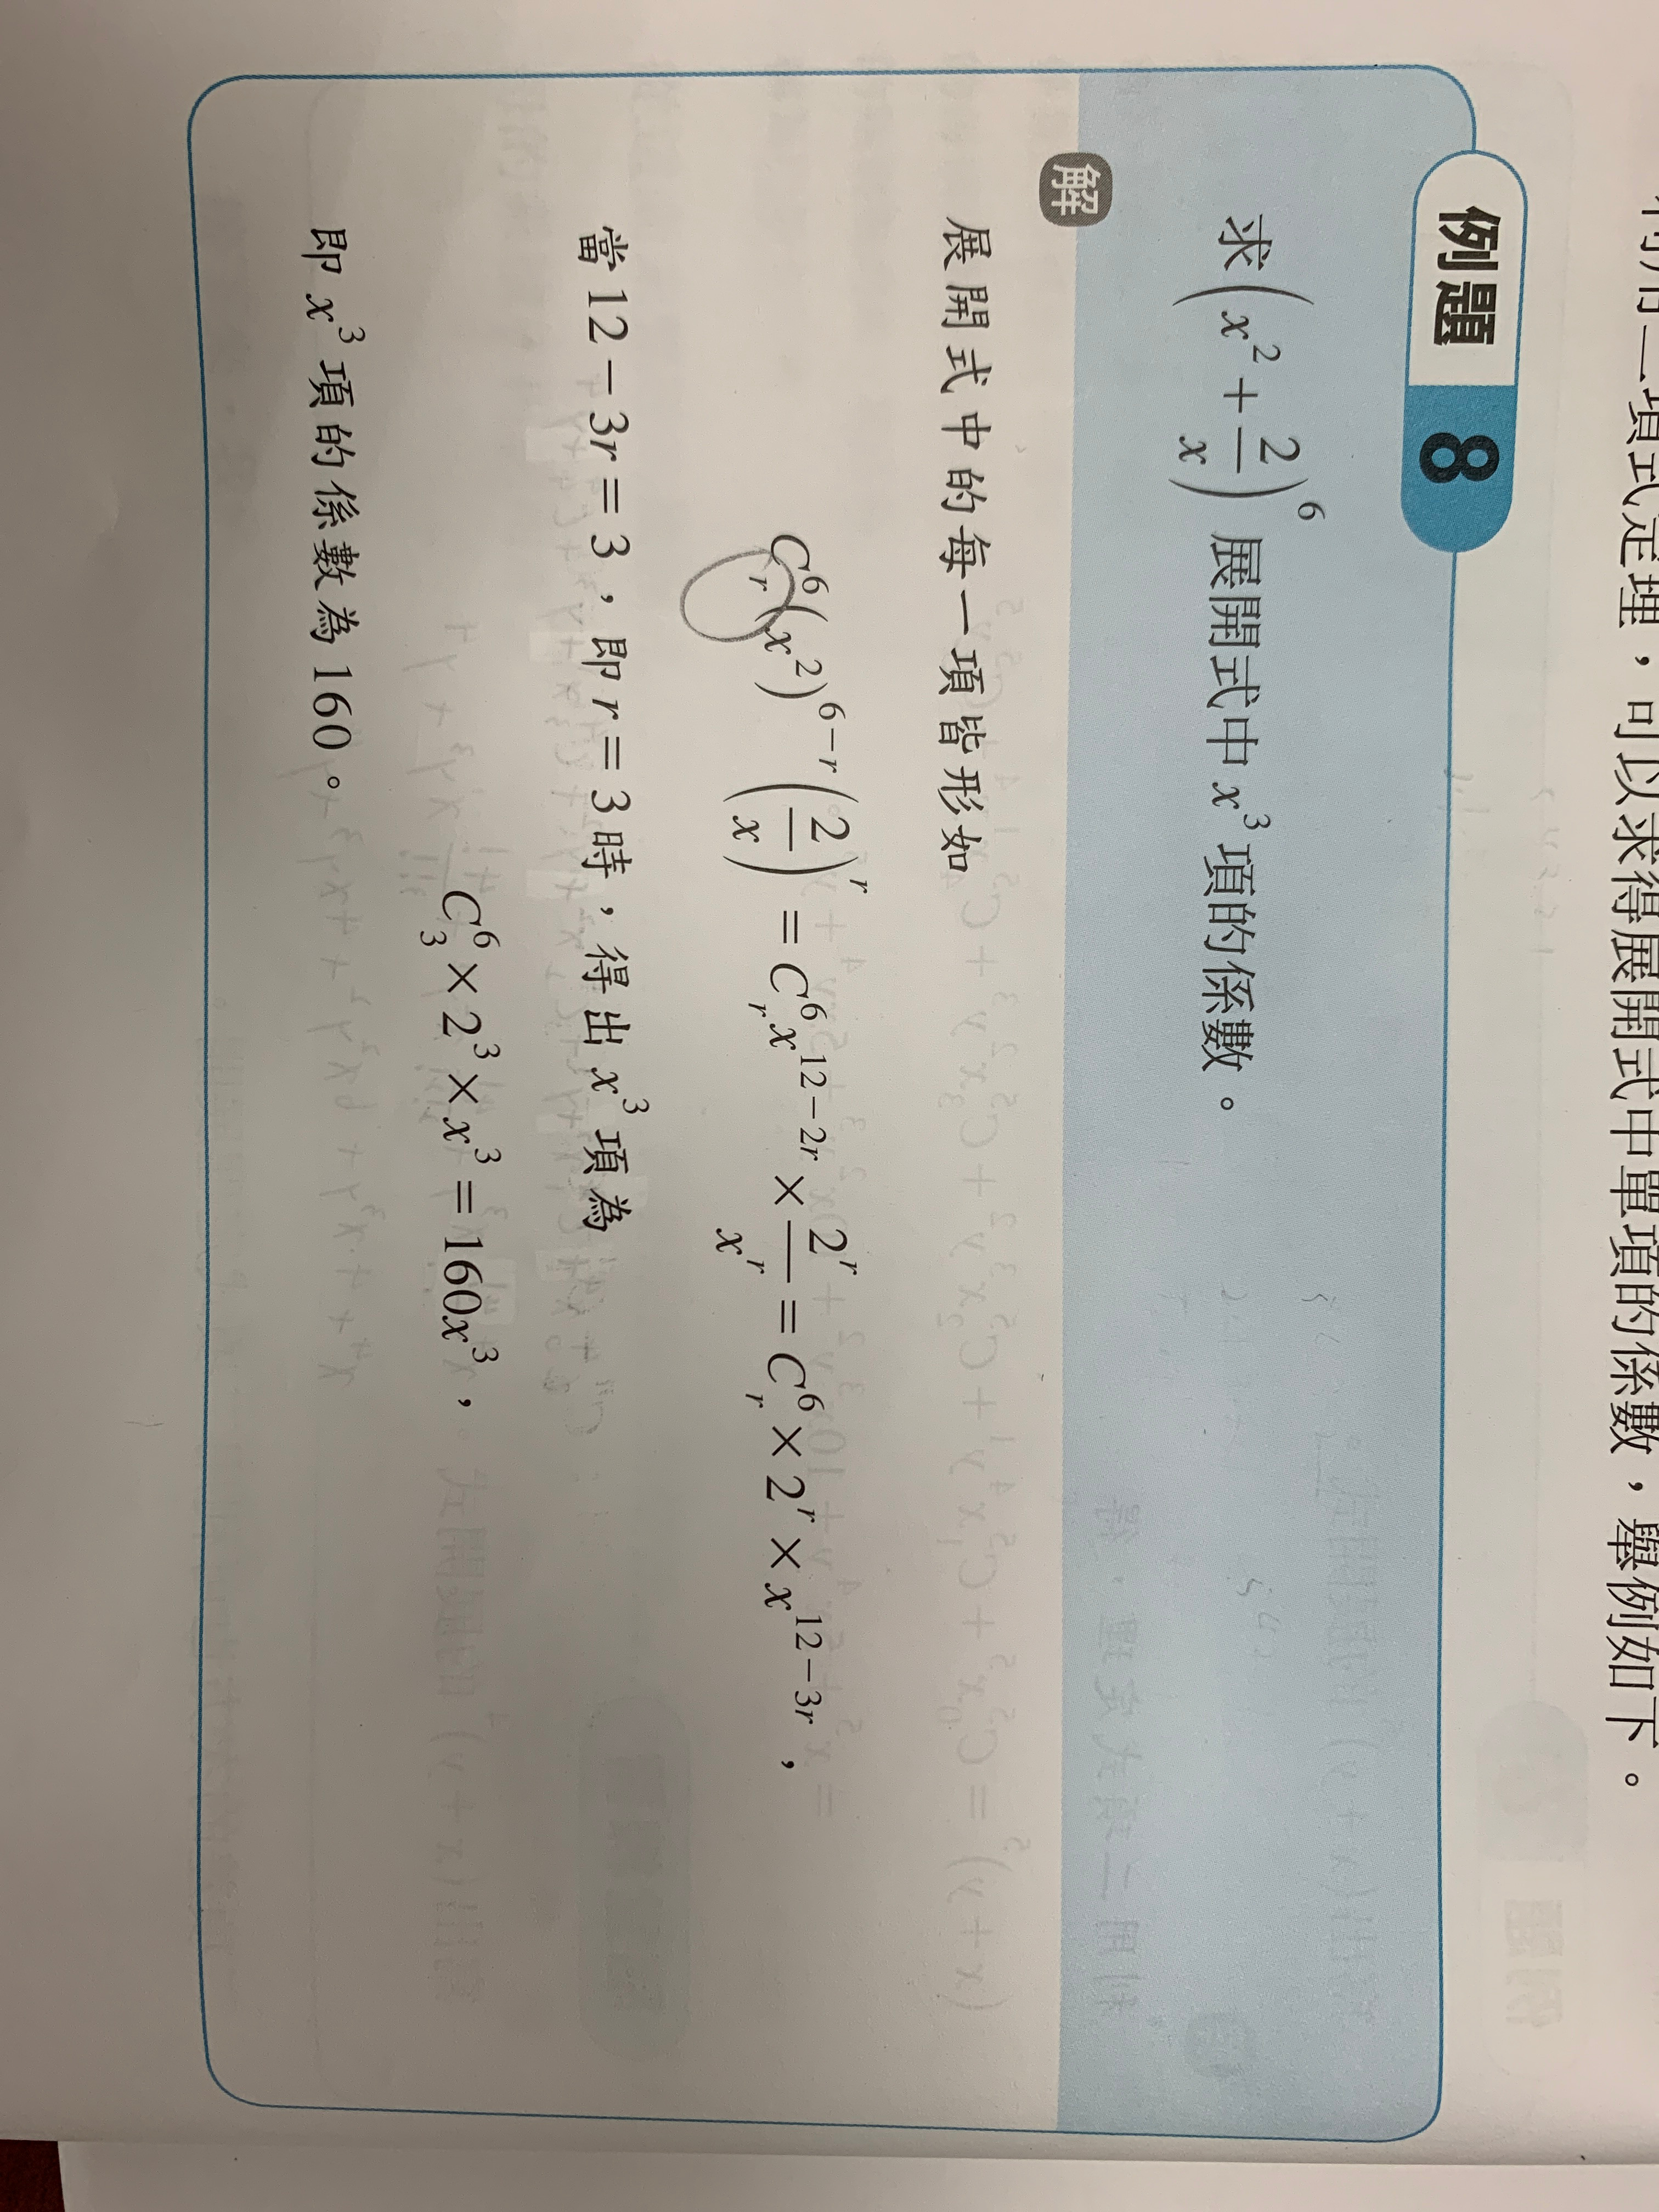 利用二項式定理，可以求得展開式中單項的係數，舉例如下。
例題 8
求(x²+2/x)⁶展開式中x³項的係數。
解
展開式中的每一項皆形如
C⁶ᵣ(x²)⁶⁻ʳ(2/x)ʳ=C⁶ᵣx¹²⁻²ʳ×2ʳ/xʳ=C⁶ᵣ×2ʳ×x¹²⁻³ʳ，
當12－3r=3，即r=3時，得出x³項為
C⁶₃×2³×x³=160x³，
即x³項的係數為160。